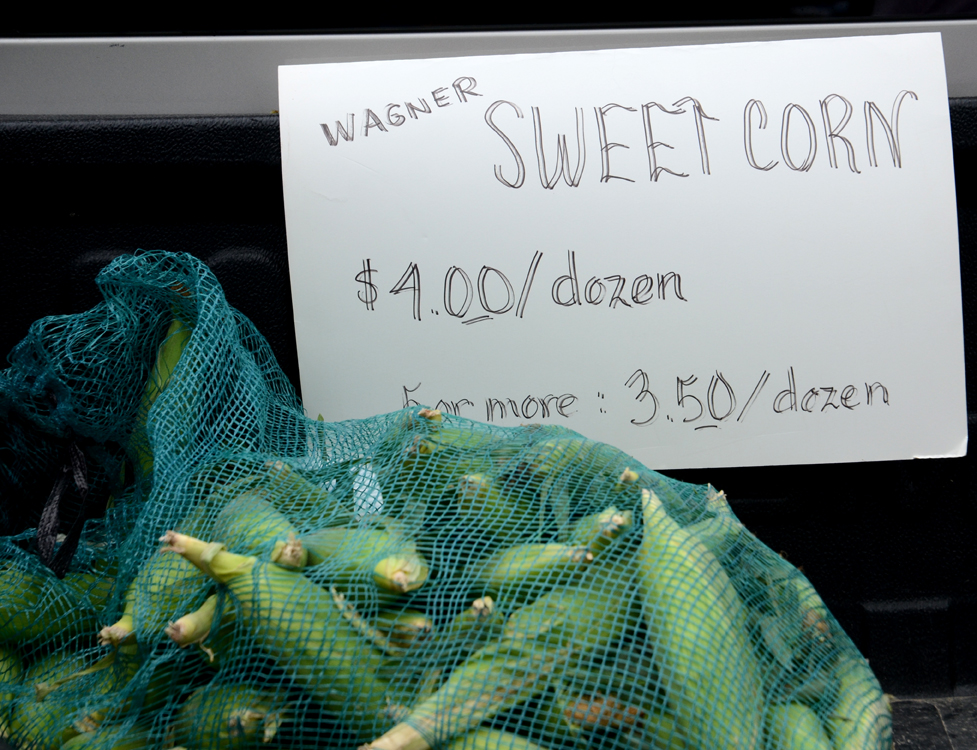 WAGNER SWEET CORN
$4.00/dozen
5 or more : 3.50/dozen